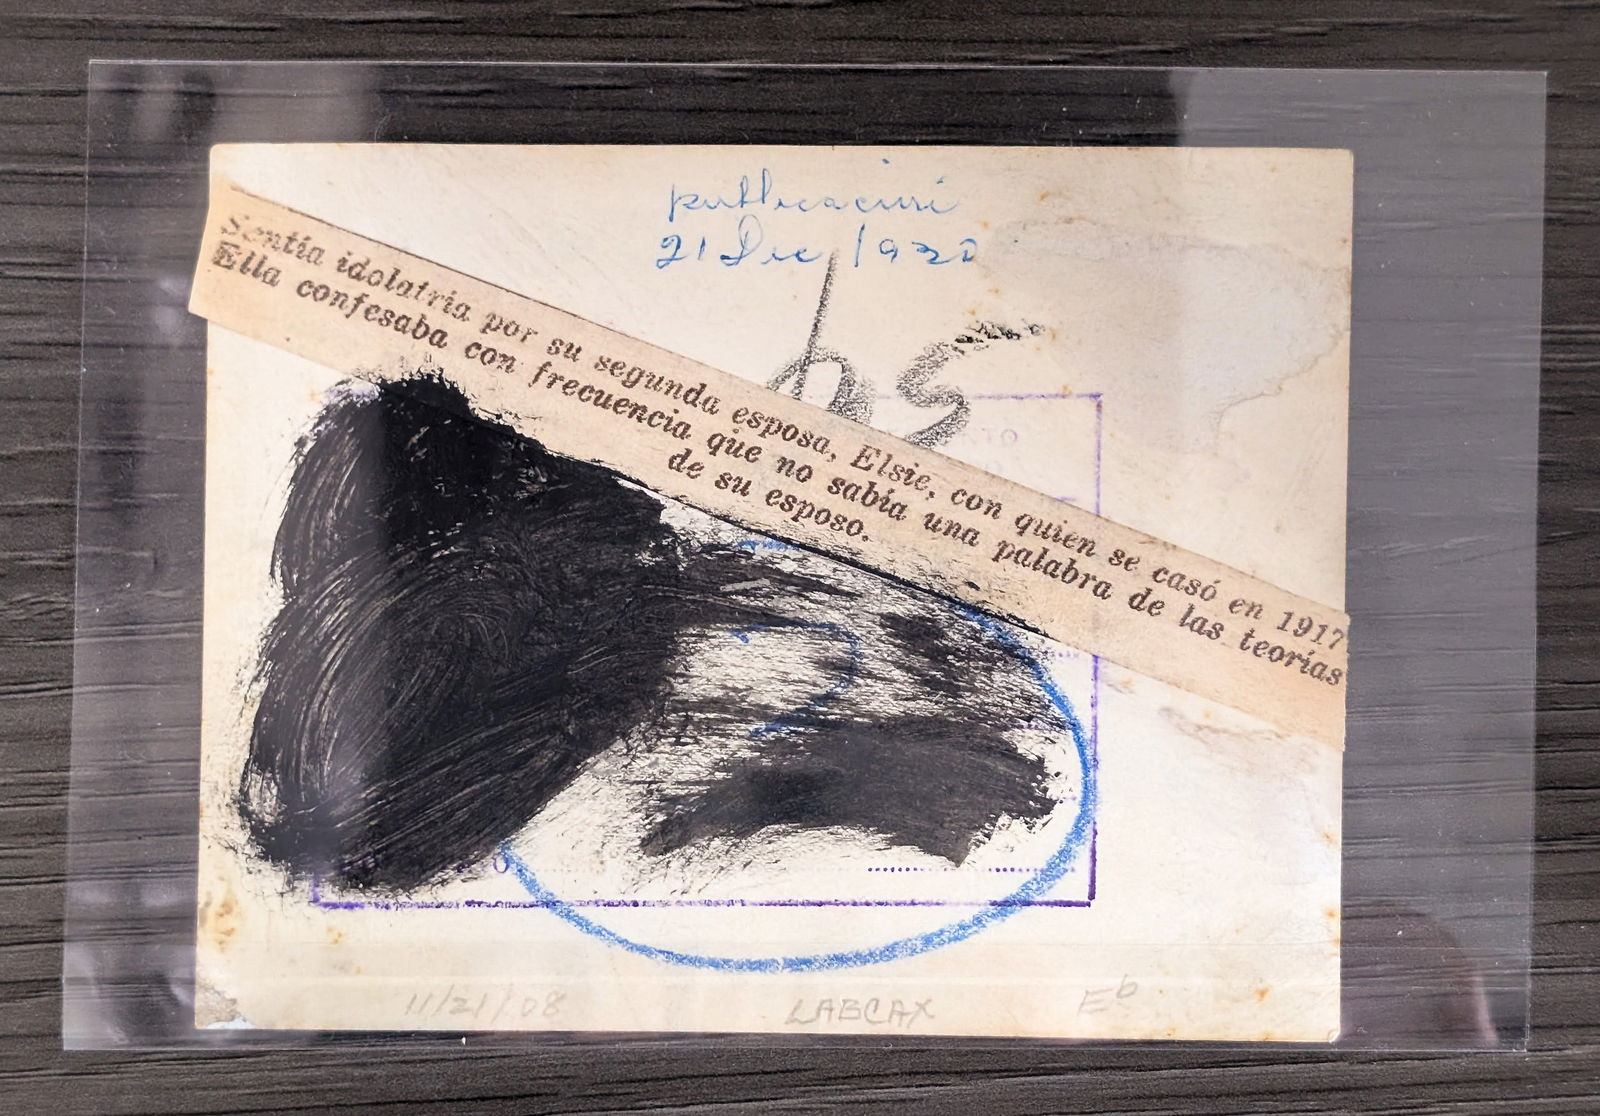 publicacion
21 Dic/1930
Sentía idolatría por su segunda esposa, Elsie, con quien se casó en 1917.
Ella confesaba con frecuencia que no sabía una palabra de las teorías
de su esposo.
11/21/08 LABCAX E b